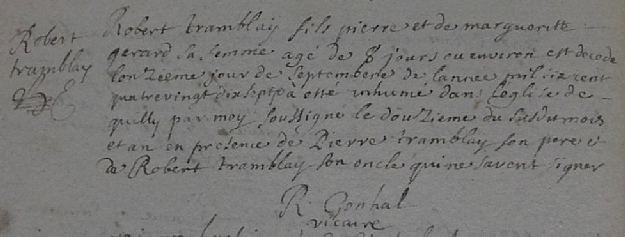 Robert
tramblay
Robert tramblay fils pierre et de margueritte
gerard sa femme agé de 8 jours ou environ est decede
lonzeeme jour de septembere de lannee mil six cent
quatre vingt dix sept a esté inhumé dans leglise de
quilly par moy soussigne le douzieme du susdit mois
et an en presence de Pierre tramblay son pere &
de Robert tramblay son oncle qui ne savent signer
R Gonhal
vicaire